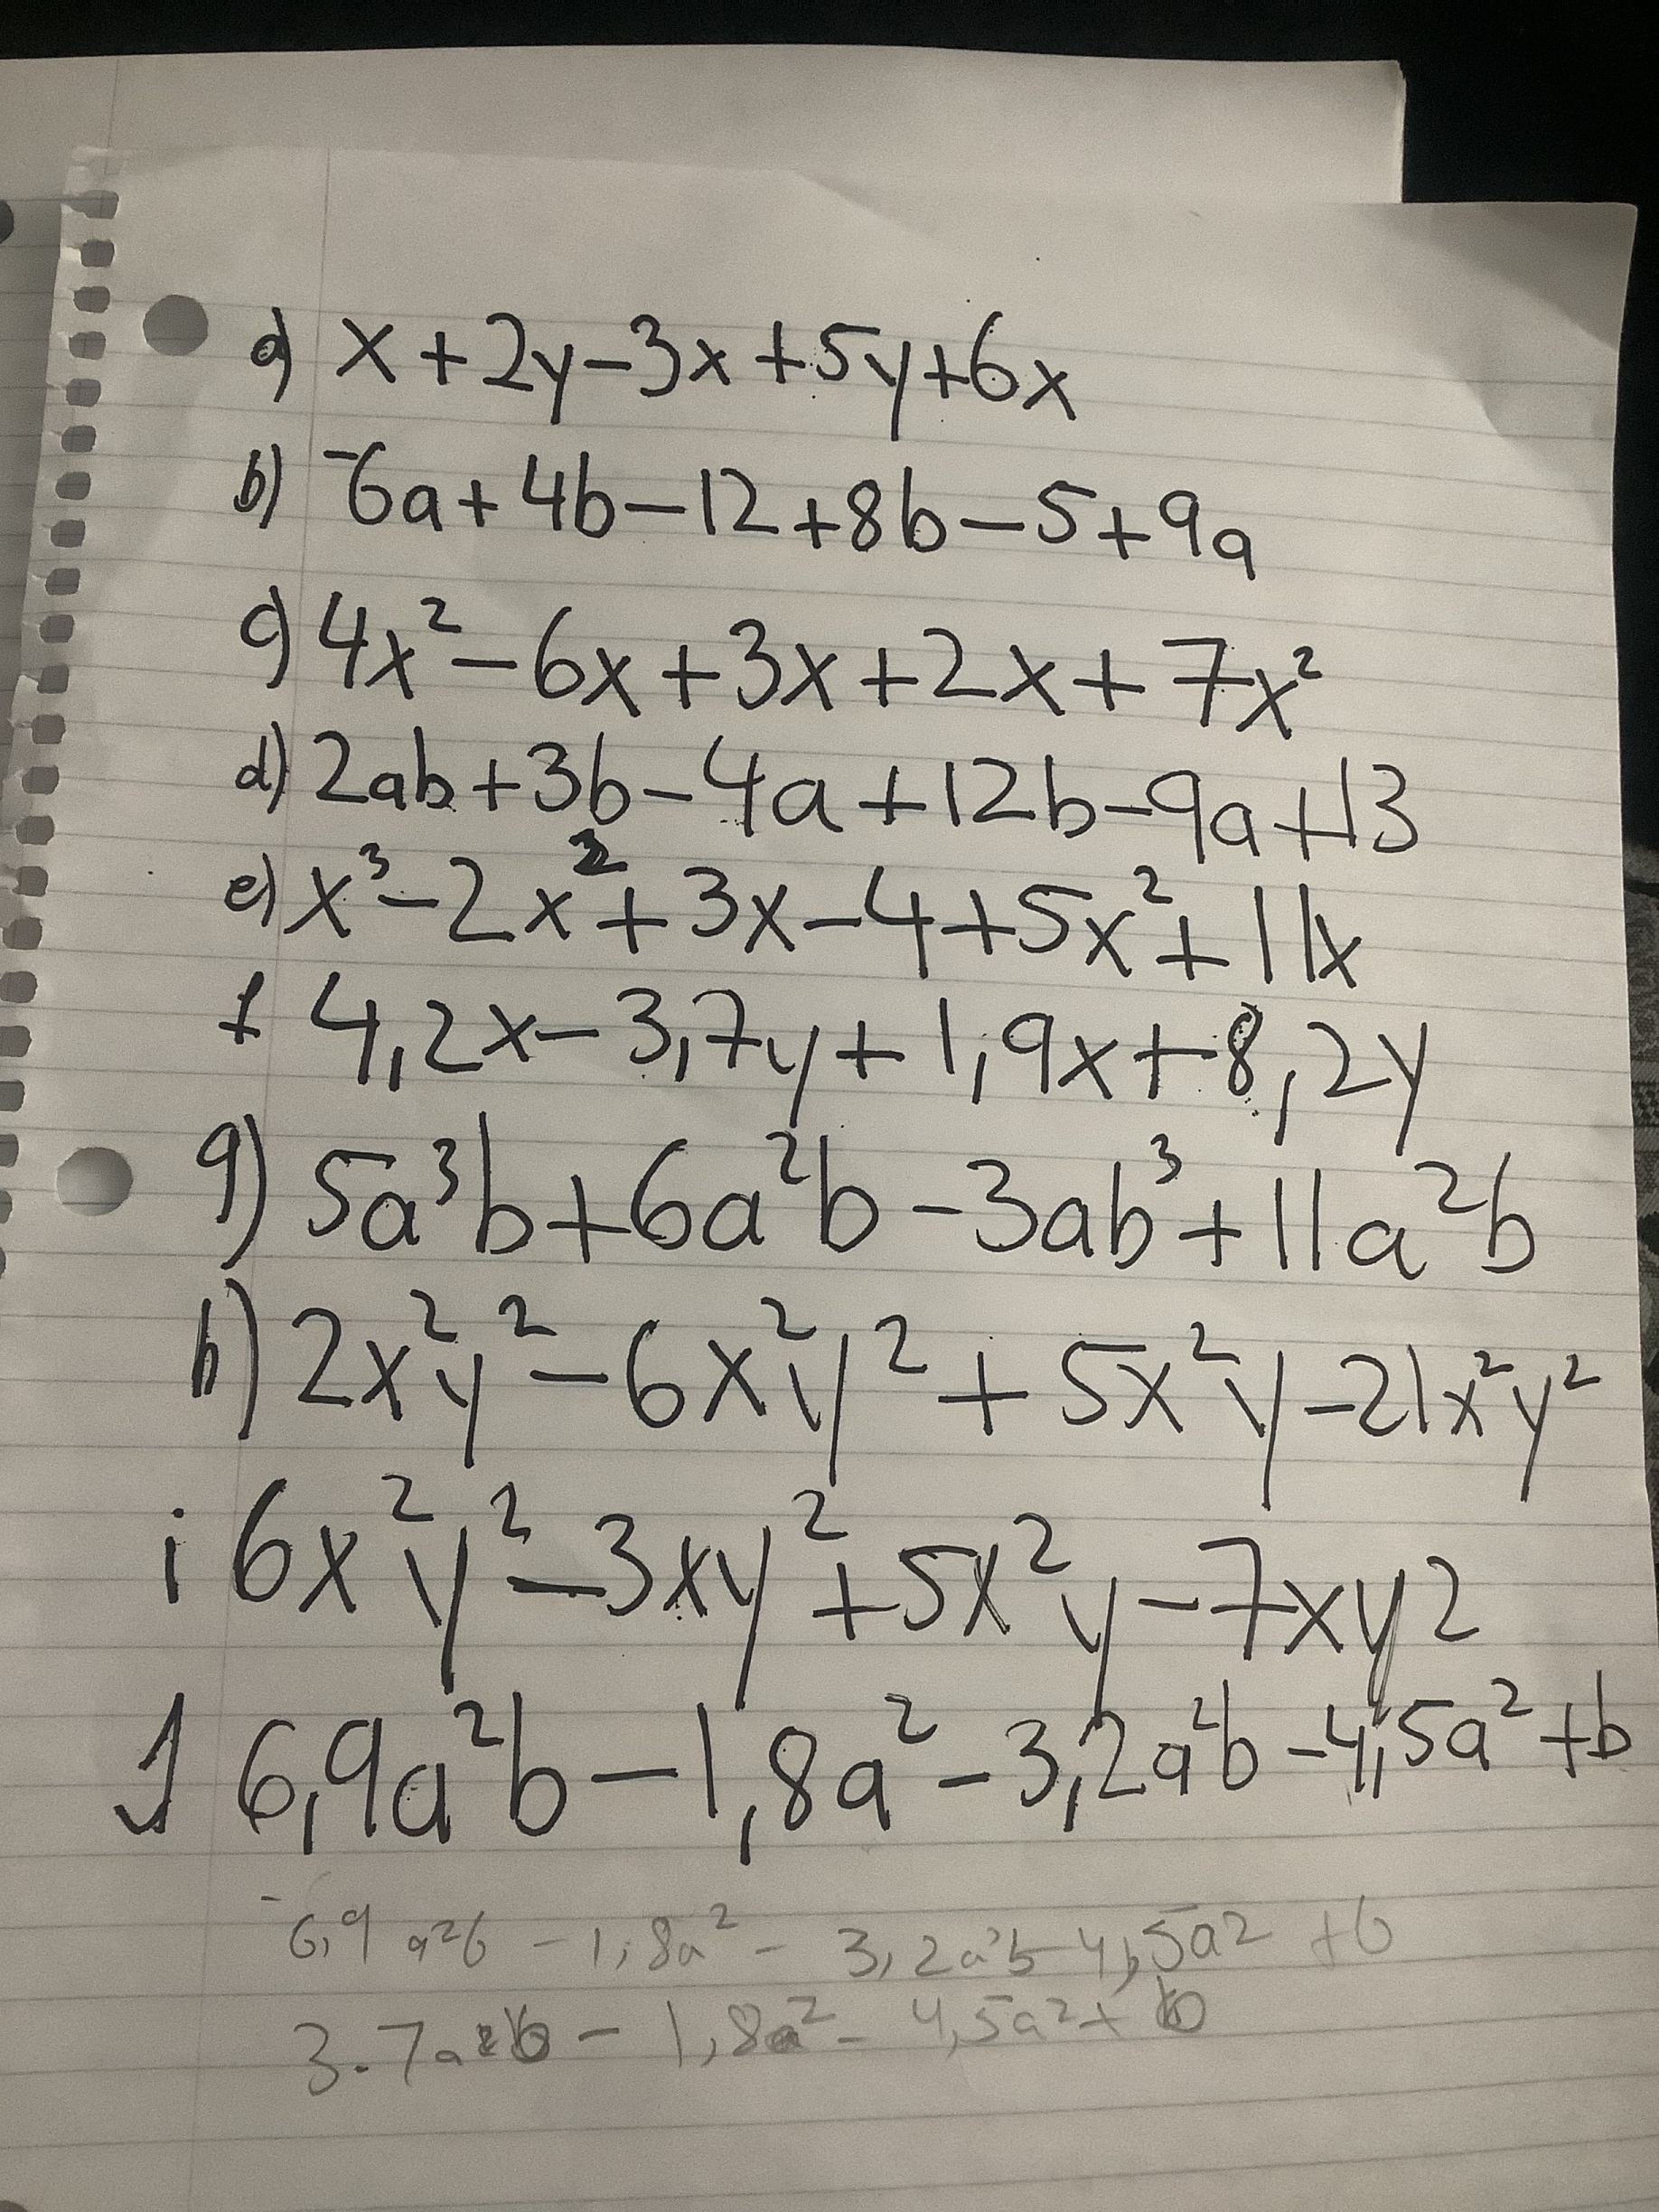 a) x + 2y - 3x + 5y + 6x
b) ⁻6a + 4b - 12 + 8b - 5 + 9a
c) 4x² - 6x + 3x + 2x + 7x²
d) 2ab + 3b - 4a + 12b - 9a + 13
e) x³ - 2x² + 3x - 4 + 5x² + 11x
f 4,2x - 3,7y + 1,9x + 8,2y
g) 5a³b + 6a²b - 3ab³ + 11a²b
h) 2x²y² - 6x²y² + 5x²y - 21x²y²
i 6x²y² - 3xy² + 5x²y - 7xy2
J 6,9a²b - 1,8a² - 3,2a²b - 4,5a² + b
⁻6,9 a²b - 1,8a² - 3,2a²b - 4,5a2 + b
3.7a2b - 1,8a² - 4,5a2 + b